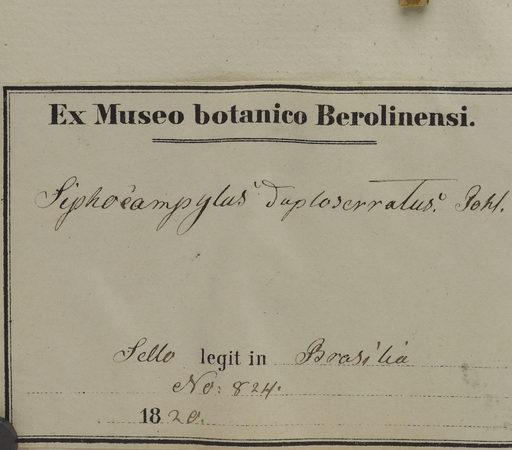 Ex Museo botanico Berolinensi.
Siphocampylus duploserratus. Pohl.
Sello legit in Brasilia
No: 824.
1820.